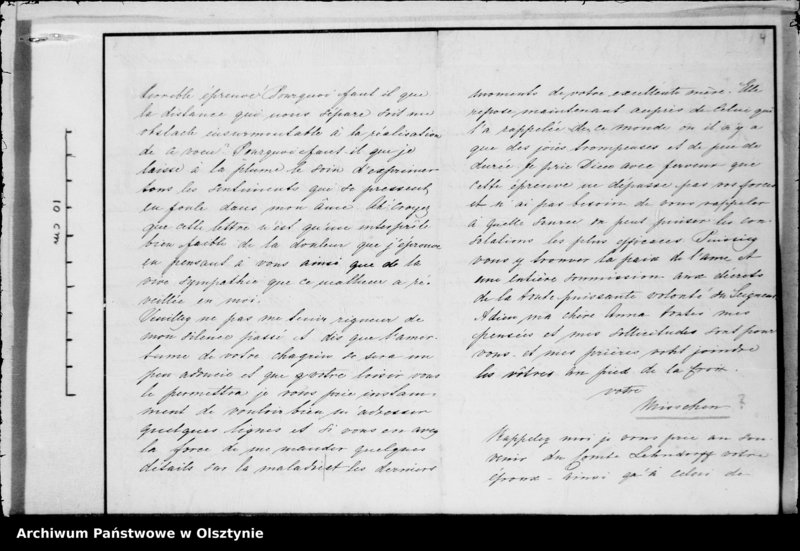 terrible épreuve! Pourquoi faut il que
la distance qui nous separe soit un
obstacle insurmontable à la réalisation
de ce voeu? Pourquoi faut il que je
laisse à la plume le soin d'exprimer
tous les sentiments qui se pressent
en foule dans mon âme. Ah! croyez
que cette lettre n'est qu'un interprête
bien faible de la douleur que j'éprouve
en pensant à vous ainsi que de la
vive sympathie que ce malheur a ré-
veillée en moi.
Veuillez ne pas me tenir rigueur de
mon silence passé et dès que l'amer-
tume de votre chagrin se sera un
peu adoucie et que votre loisir vous
le permettra je vous prie instam-
ment de vouloir bien m'adresser
quelques lignes et si vous en avez
la force de me mander quelques
détails sur la maladie et les derniers
moments de votre excellente mère. Elle
repose maintenant auprès de Celui qui
l'a rappelée de ce monde où il n'y a
que des joies trompeuses et de peu de
durée. Je prie Dieu avec ferveur que
cette épreuve ne dépasse pas vos forces
et n'ai pas besoin de vous rappeler
à quelle source on peut puiser les con-
solations les plus efficaces. Puissiez
vous y trouver la paix de l'âme et
une entière soumission aux décrets
de la toute puissante volonté du Seigneur.
Adieu ma chère Anna toutes mes
pensées et mes sollicitudes sont pour
vous et mes prières vont joindre
les vôtres au pied de la Croix.
votre
?
Rappelez moi je vous prie au sou-
venir du Comte Lehndorff votre
époux - ainsi qu'à celui de
10 cm
Archiwum Państwowe w Olsztynie